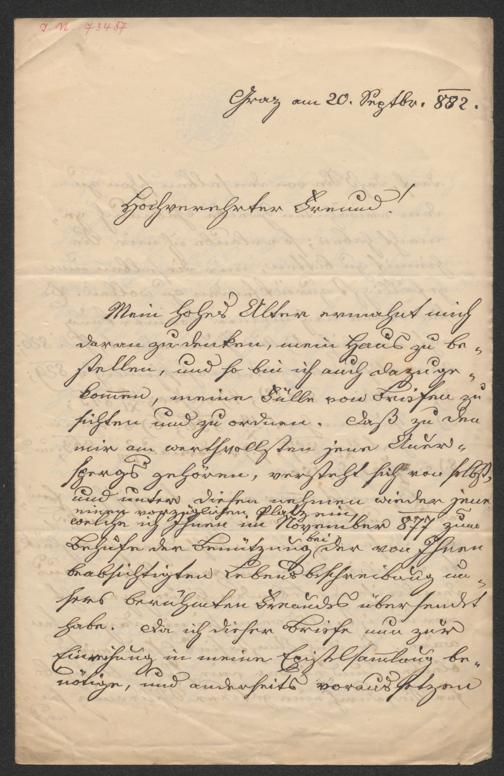 J. N. 73467
Graz am 20. Septbr. 882.
Hochverehrter Freund!
Mein hohes Alter ermahnt mich
daran zu denken, mein Haus zu be-
stellen, und so bin ich auch dazu ge-
kommen, meine Fülle von Briefen zu
sichten und zu ordnen. Daß zu den
mir am werthvollsten jene Auer-
spergs gehören, versteht sich von selbst,
und unter diesen nehmen wieder jene
einen vorzüglichen Platz ein,
welche ich Ihnen im November 877 zum
Behufe der Benützung bei der von Ihnen
beabsichtigten Lebensbeschreibung un-
sers berühmten Freundes übersendet
habe. Da ich dieser Briefe nun zur
Einreihung in meine Epistelsammlung be-
nötige, und anderseits voraussetzen